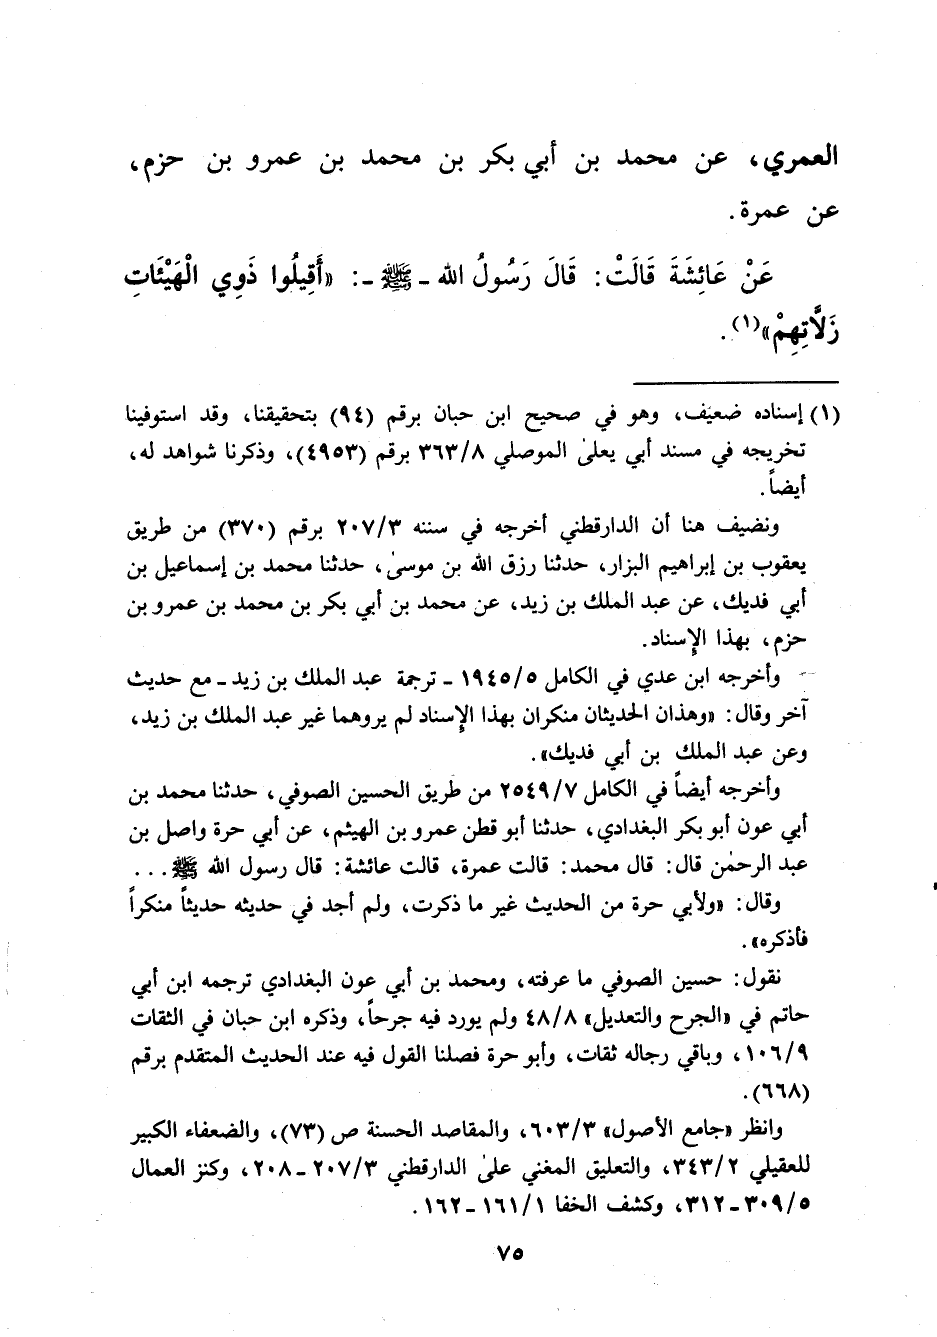 العمري، عن محمد بن أبي بكر بن محمد بن عمرو بن حزم،
عن عمرة.
عَنْ عَائِشَةَ قَالَتْ: قَالَ رَسُولُ الله ـ ﷺ ـ: «أَقِيلُوا ذَوِي الْهَيْئَاتِ
زَلَّاتِهِمْ»(١).
(١) إسناده ضعيف، وهو في صحيح ابن حبان برقم (٩٤) بتحقيقنا، وقد استوفينا
تخريجه في مسند أبي يعلىٰ الموصلي ٣٦٣/٨ برقم (٤٩٥٣)، وذكرنا شواهد له،
أيضاً.
ونضيف هنا أن الدارقطني أخرجه في سننه ٢٠٧/٣ برقم (٣٧٠) من طريق
يعقوب بن إبراهيم البزار، حدثنا رزق الله بن موسىٰ، حدثنا محمد بن إسماعيل بن
أبي فديك، عن عبد الملك بن زيد، عن محمد بن أبي بكر بن محمد بن عمرو بن
حزم، بهذا الإسناد.
وأخرجه ابن عدي في الكامل ١٩٤٥/٥ ـ ترجمة عبد الملك بن زيد ـ مع حديث
آخر وقال: «وهذان الحديثان منكران بهذا الإسناد لم يروهما غير عبد الملك بن زيد،
وعن عبد الملك بن أبي فديك».
وأخرجه أيضاً في الكامل ٢٥٤٩/٧ من طريق الحسين الصوفي، حدثنا محمد بن
أبي عون أبو بكر البغدادي، حدثنا أبو قطن عمرو بن الهيثم، عن أبي حرة واصل بن
عبد الرحمٰن قال: قال محمد: قالت عمرة، قالت عائشة: قال رسول الله ﷺ ...
وقال: «ولأبي حرة من الحديث غير ما ذكرت، ولم أجد في حديثه حديثاً منكراً
فأذكره».
نقول: حسين الصوفي ما عرفته، ومحمد بن أبي عون البغدادي ترجمه ابن أبي
حاتم في «الجرح والتعديل» ٤٨/٨ ولم يورد فيه جرحاً، وذكره ابن حبان في الثقات
١٠٦/٩، وباقي رجاله ثقات، وأبو حرة فصلنا القول فيه عند الحديث المتقدم برقم
(٦٦٨).
وانظر «جامع الأصول» ٦٠٣/٣، والمقاصد الحسنة ص (٧٣)، والضعفاء الكبير
للعقيلي ٣٤٣/٢، والتعليق المغني علىٰ الدارقطني ٢٠٧/٣ـ٢٠٨، وكنز العمال
٣٠٩/٥ـ٣١٢، وكشف الخفا ١٦١/١ـ١٦٢.
٧٥